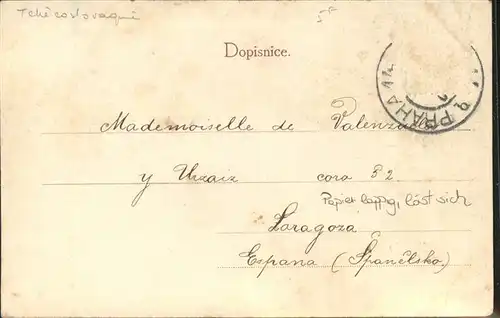 Tchécoslovaquie
5F
Dopisnice.
PRAHA
Mademoiselle de Valenzuela
y Urzaiz coro 52.
Papier lappig, löst sich
Zaragoza
Espana (Španělsko)